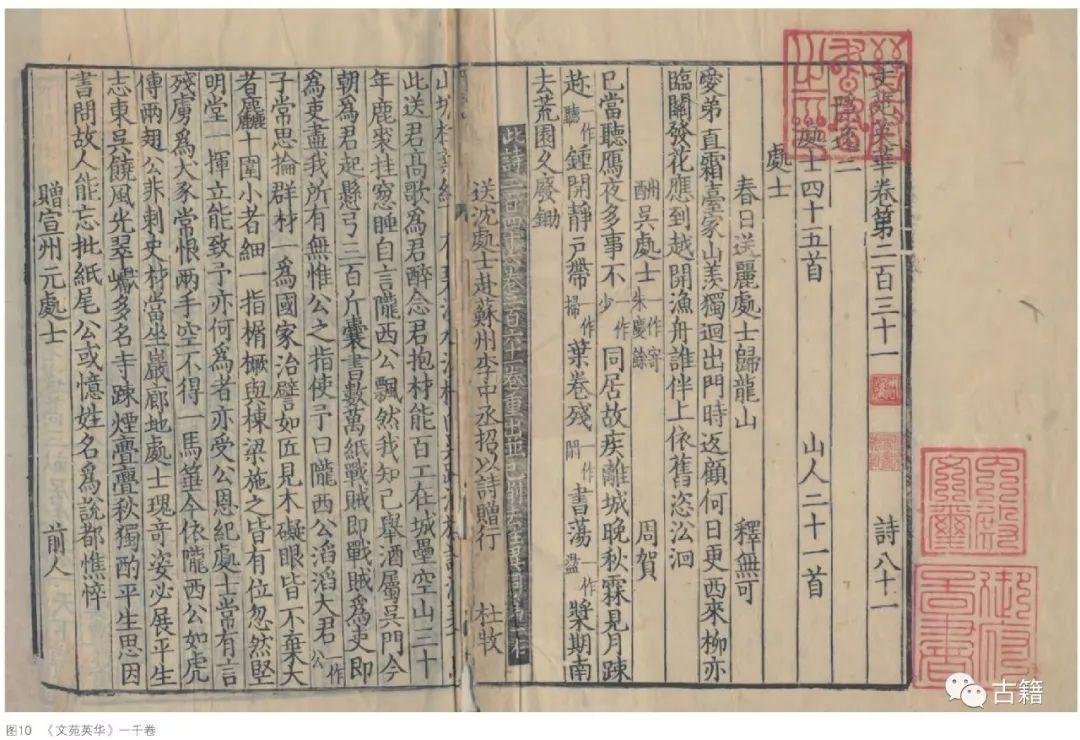 文苑英華卷第二百三十一 詩八十一
隱逸二
處士四十五首 山人二十一首
處士
春日送麗處士歸龍山 釋無可
愛弟直霜臺家山羡獨迴出門時返顧何日更西來柳亦
臨關發花應到越開漁舟誰伴上依舊恣沿洄
酬一作寄吳處士朱慶餘 周賀
已當聽鴈夜多事不一作少同居故疾離城晚秋霖見月踈
赴一作聽鍾開靜戶帶一作掃葉卷殘一作閒書蕩一作盪槳期南
去荒園久廢鋤
此詩二百六十卷重出
送沈處士赴蘇州李中丞招以詩贈行 杜牧
山城
此送君髙歌爲君醉念君抱材能百工在城壘空山三十
年鹿裘挂窓睡自言隴西公飄然我知己舉酒屬吳門今
朝爲君起懸弓三百斤囊書數萬紙戰賊即戰賊爲吏即
爲吏盡我所有無惟公之指使予曰隴西公滔滔大君一作公
子常思掄群材一爲國家治譬如匠見木礙眼皆不棄大
者麤十圍小者細一指楣橛與棟梁施之皆有位忽然竪
明堂一揮立能致予亦何爲者亦受公恩紀處士常有言
殘虜爲犬豕常恨兩手空不得一馬箠今依隴西公如虎
傳兩翅公非刺史材當坐巖廊地處士瑰竒姿必展平生
志東吳饒風光翠巘多名寺踈煙亹亹秋獨酌平生思因
書問故人能忘批紙尾公或憶姓名爲說都憔悴
贈宣州元處士 前人
古籍
图10 《文苑英华》一千卷